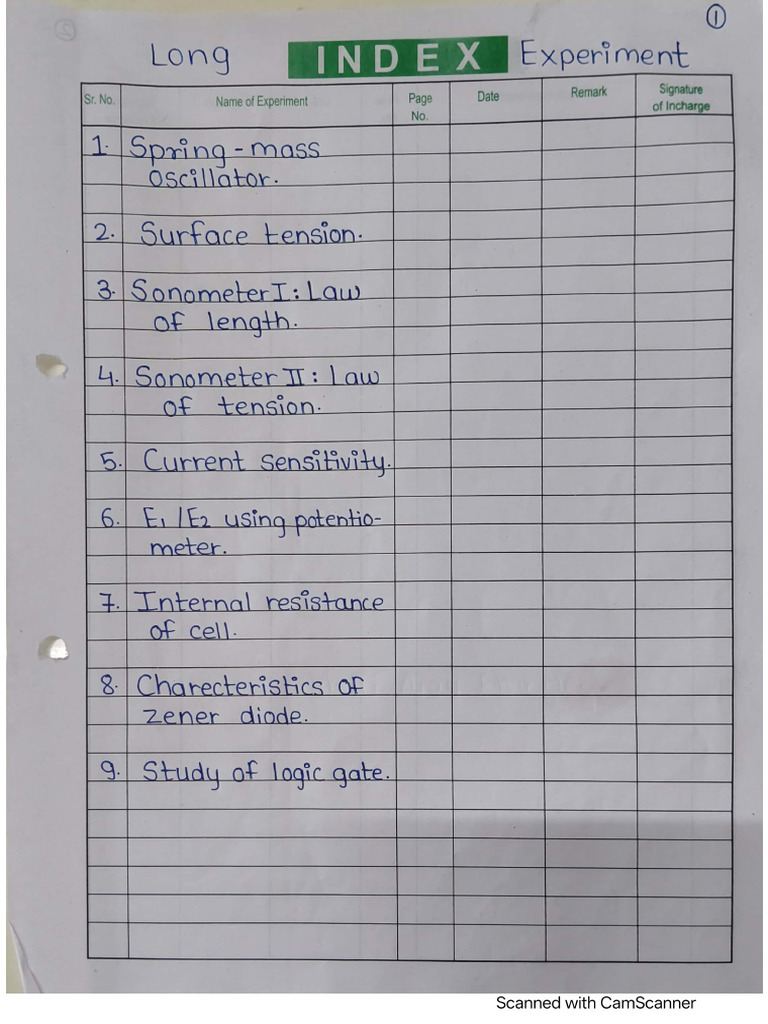 1
Long INDEX Experiment
Sr. No. Name of Experiment Page No. Date Remark Signature of Incharge
1. Spring-mass
oscillator.
2. Surface tension.
3. Sonometer I : Law
of length.
4. Sonometer II : Law
of tension.
5. Current sensitivity.
6. E1 / E2 using potentio-
meter.
7. Internal resistance
of cell.
8. Charecteristics of
zener diode.
9. Study of logic gate.
Scanned with CamScanner